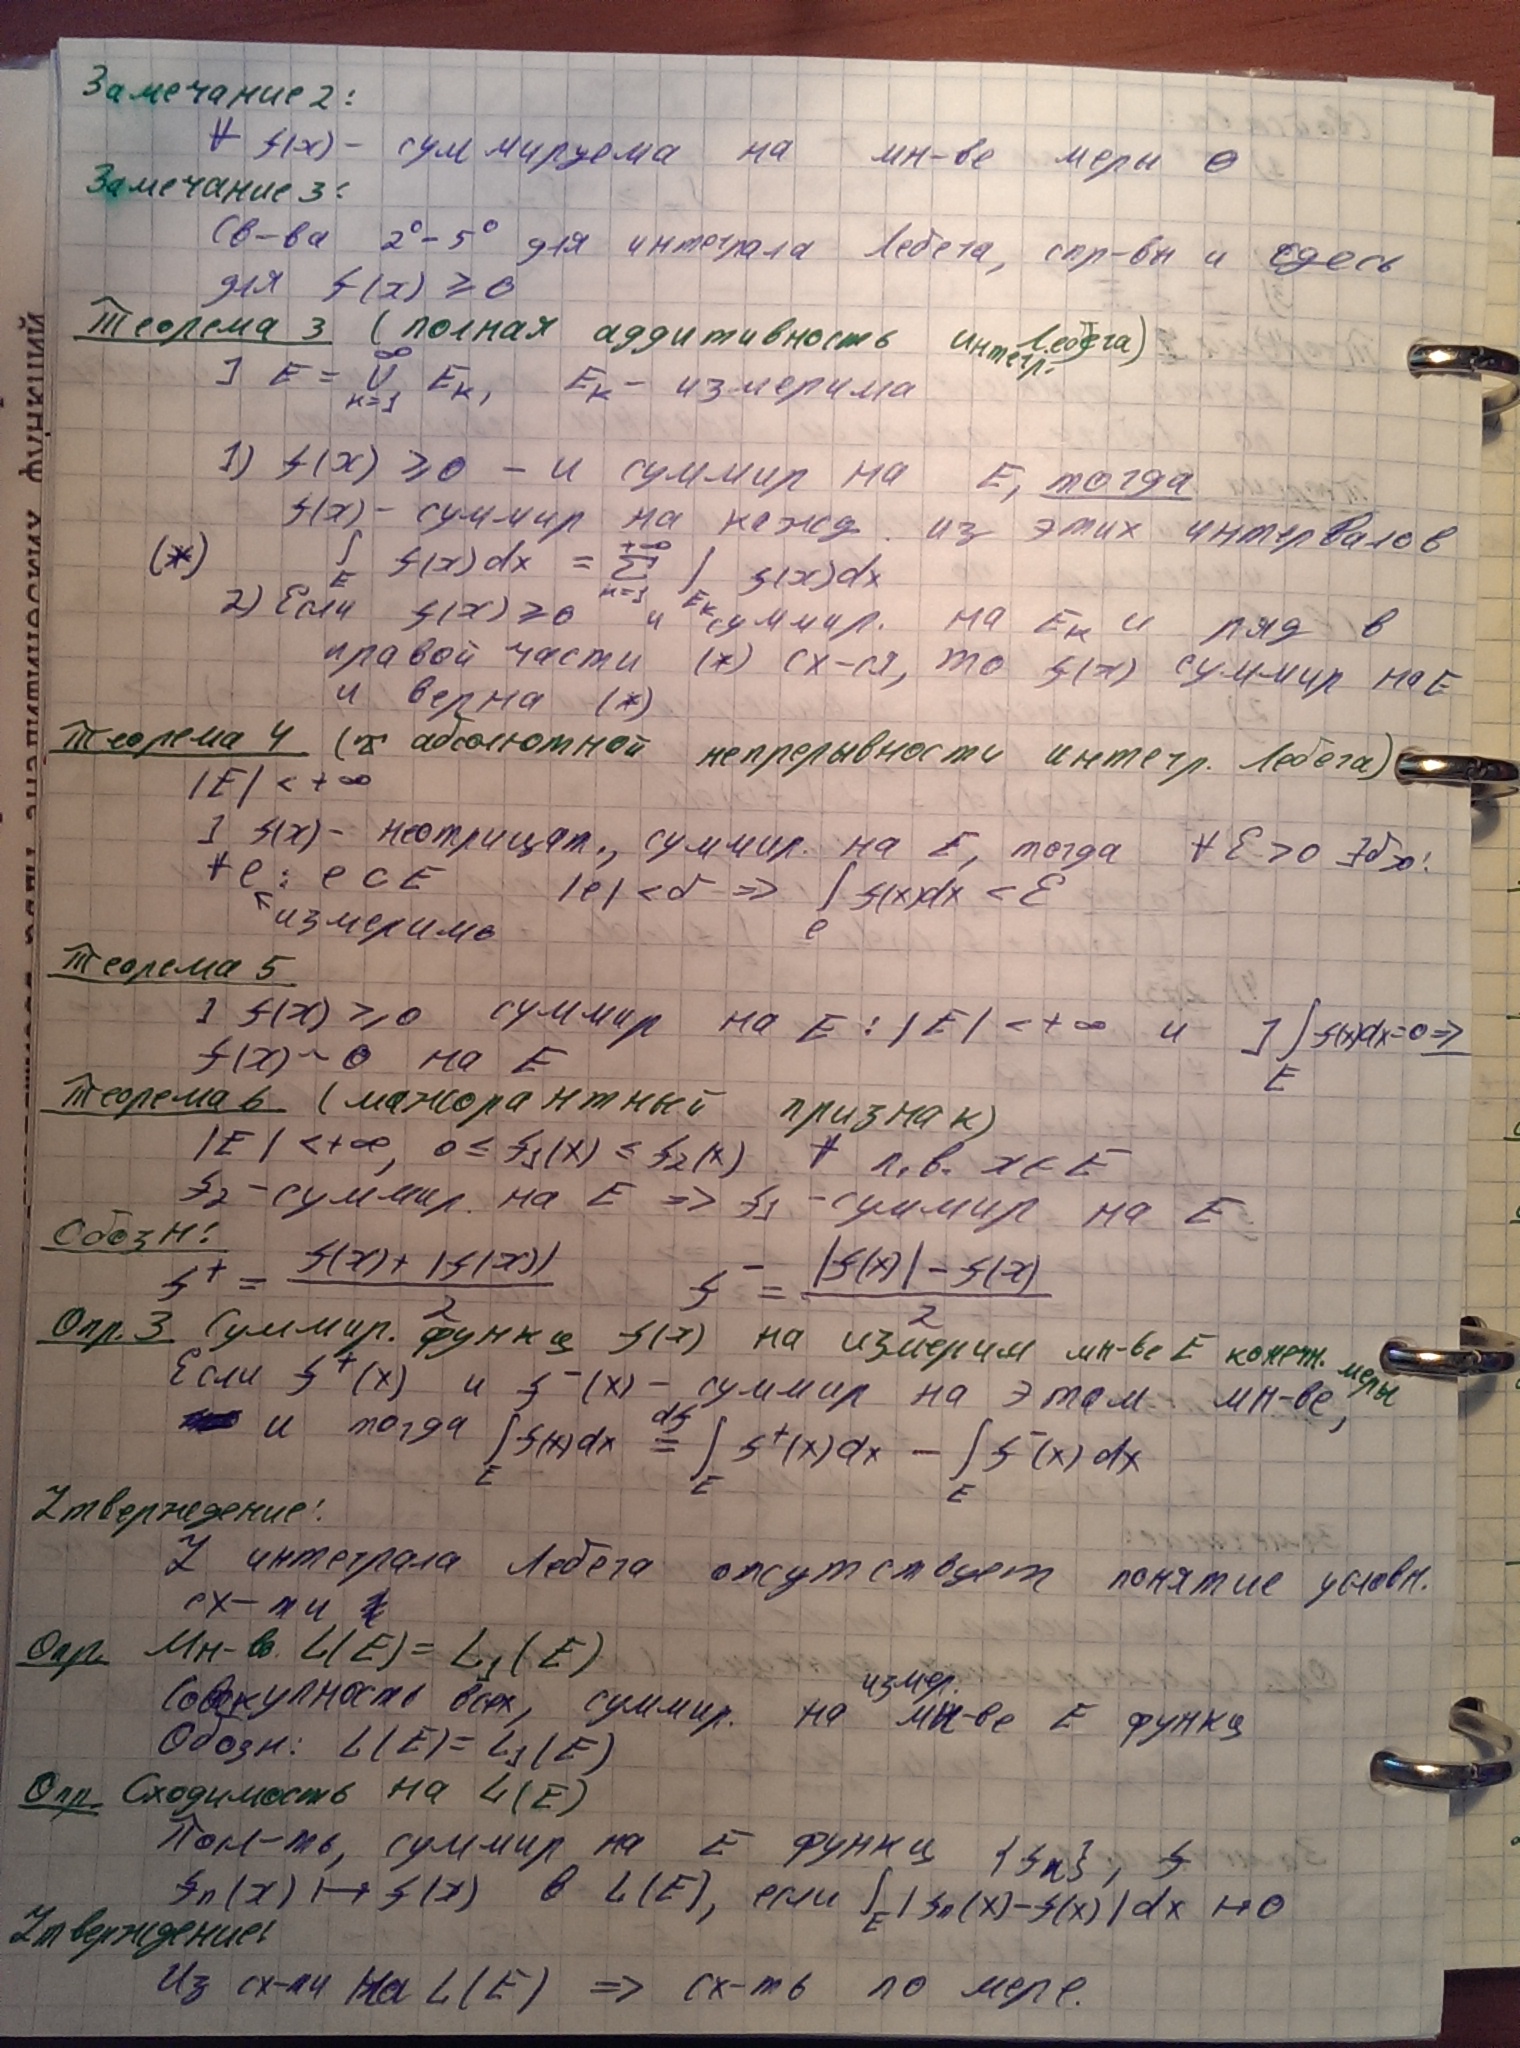 Замечание 2:
∀ f(x) – суммируема на мн-ве меры 0
Замечание 3:
Св-ва 2° – 5° для интеграла Лебега, спр-вы и здесь
для f(x) ≥ 0
Теорема 3 (полная аддитивность интегр. Лебега)
] E = ∞ ∪ k=1 Eк, Eк – измерима
1) f(x) ≥ 0 – и суммир на E, тогда
f(x) – суммир на кажд. из этих интервалов
(*) ∫E f(x)dx = +∞ Σ к=1 ∫Eк f(x)dx
2) Если f(x) ≥ 0 и суммир. на Eк и ряд в
правой части (*) сх-ся, то f(x) суммир на E
и верна (*)
Теорема 4 ( абсолютной непрерывности интегр. Лебега)
|E| < +∞
] f(x) – неотрицат., суммир. на E, тогда ∀ ε > 0 ∃δ>0:
∀ e : e ⊂ E |e| < δ => ∫e f(x)dx < ε
измеримо
Теорема 5
] f(x) ≥ 0 суммир на E : |E| < +∞ и ] ∫E f(x)dx = 0 =>
f(x) ~ 0 на E
Теорема 6 (мажорантный признак)
|E| < +∞, 0 ≤ f1(x) ≤ f2(x) ∀ п.в. x ∈ E
f2 – суммир. на E => f1 – суммир на E
Обозн:
f⁺ = (f(x) + |f(x)|)/2 f⁻ = (|f(x)| – f(x))/2
Опр. 3 Суммир. функц f(x) на измерим мн-ве E конечн. меры
Если f⁺(x) и f⁻(x) – суммир на этом мн-ве,
и тогда ∫E f(x)dx df= ∫E f⁺(x)dx – ∫E f⁻(x)dx
Утверждение:
У интеграла Лебега отсутствует понятие условн.
сх-ти
Опр. Мн-во L(E) = L1(E)
Совокупность всех, суммир. на измер. мн-ве E функц
Обозн: L(E) = L1(E)
Опр. Сходимость на L(E)
Посл-ть, суммир на E функц {fn}, f
fn(x) ↦ f(x) в L(E), если ∫E |fn(x) – f(x)|dx ↦ 0
Утверждение:
Из сх-ти на L(E) => сх-ть по мере.